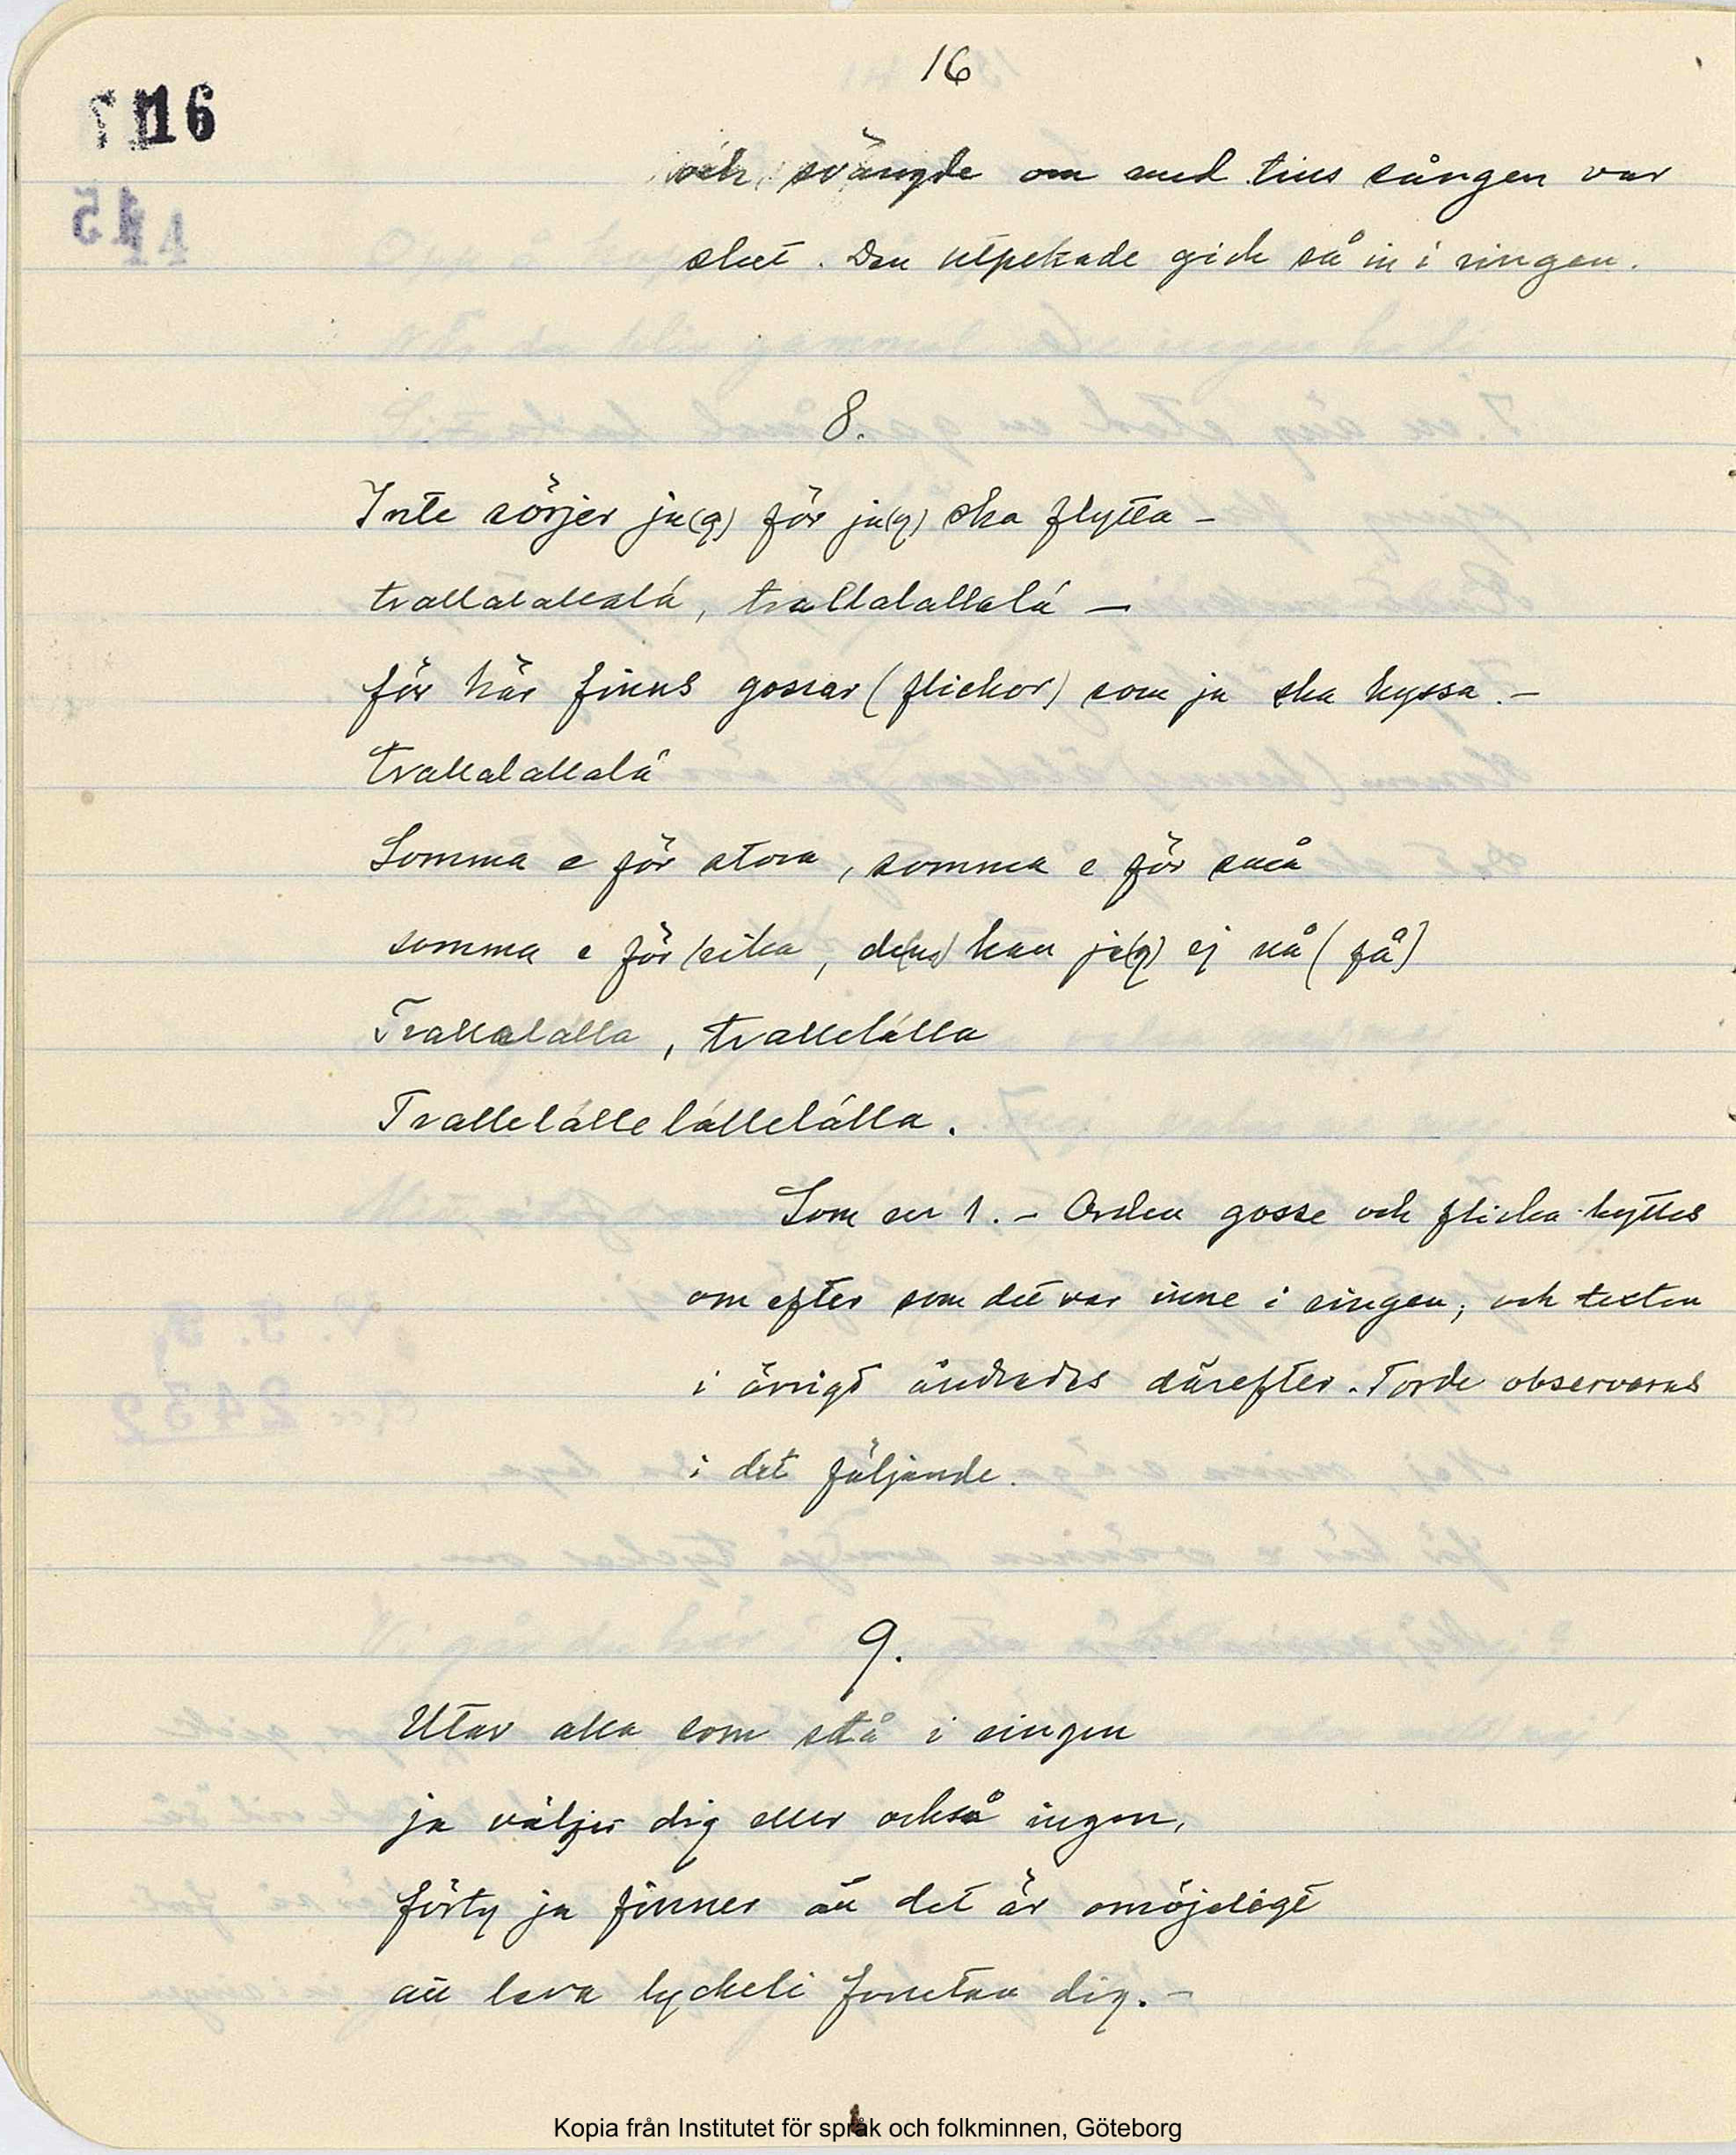 16
16
och svängde om med tills sången var
slut. Den utpekade gick så in i ringen.
8.
Inte sörjer ja(g) för ja(g) ska flytta –
trallalallalá, trallalallalá –
för här finns gossar (flickor) som ja ska kyssa. –
trallalallalá
Somma e för stora, somma e för små
somma e för rika, de(m) kan ja(g) ej nå (få)
Trallalálla, trallelálla
Trallelállelállelálla.
Som nr 1. – Orden gosse och flicka byttes
om efter som det var inne i ringen, och texten
i övrigt ändrades därefter. Torde observeras
i det följande.
9.
Utav alla som stå i ringen
ja väljer dig eller också ingen,
förty ja finner att det är omöjeligt
att leva lyckeli förutan dig. –
Kopia från Institutet för språk och folkminnen, Göteborg